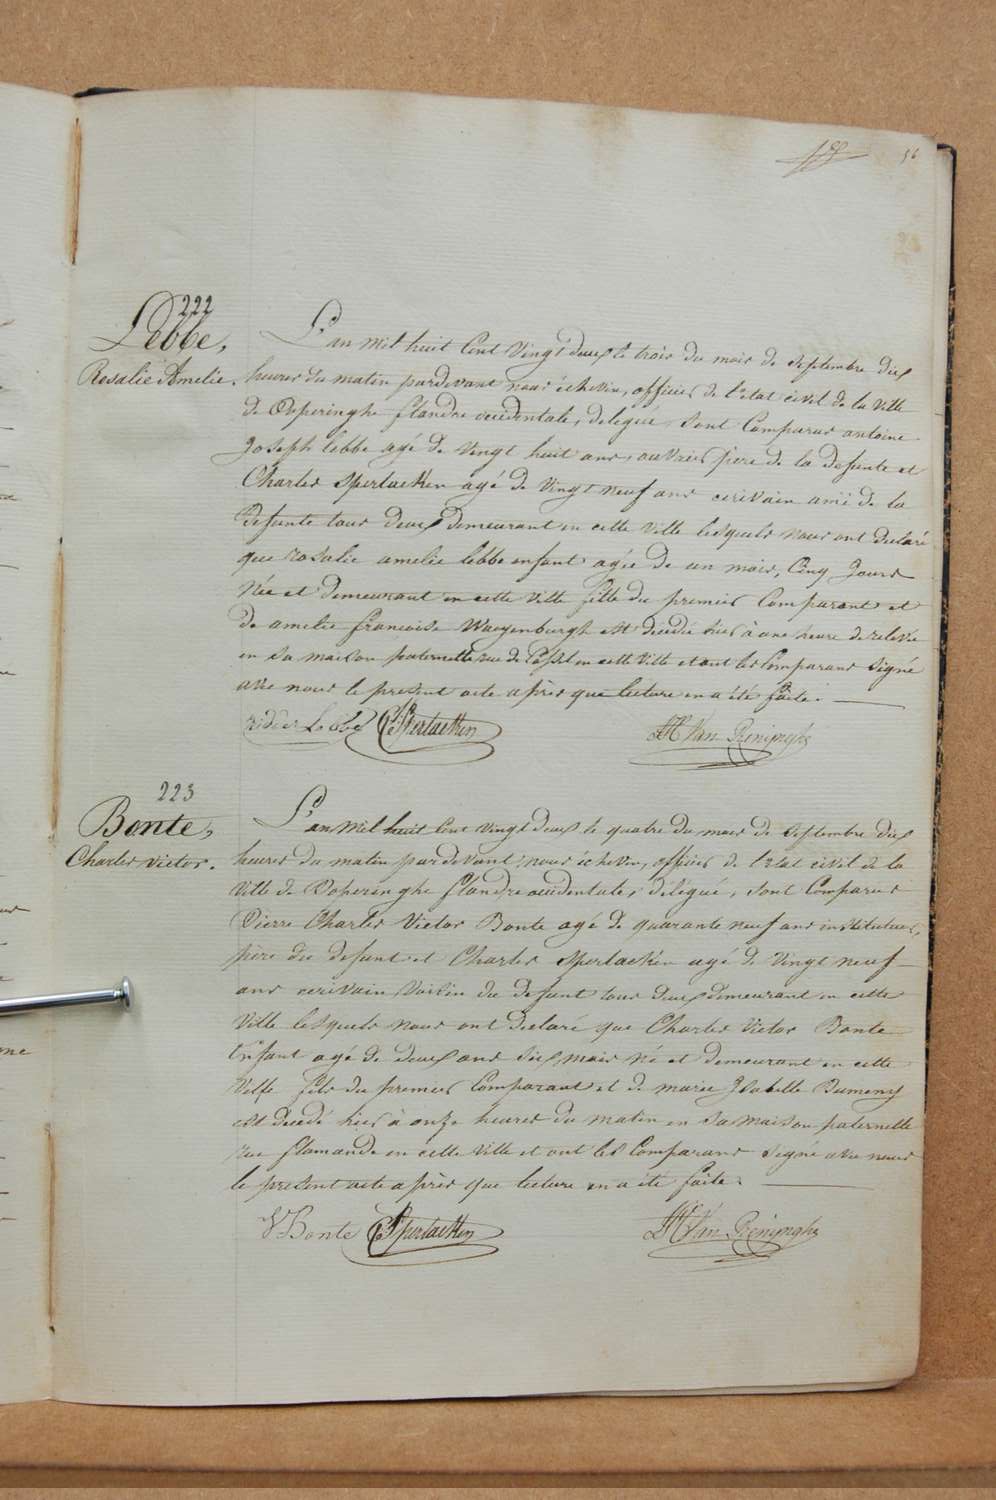 56
222
Lebbe,
Rosalie Amelie.
L'an mil huit Cent vingt deux le trois du mois de Septembre dix
heures du matin pardevant nous échevin, officier de l'etat civil de la ville
de Poperinghe flandre occidentale, delégué, sont Comparus antoine
Joseph lebbe agé de vingt huit ans, ouvrier pere de la defunte et
Charles Sperlaeken agé de vingt neuf ans ecrivain ami de la
defunte tous deux demeurant en cette ville lesquels nous ont declaré
que rosalie amelie lebbe enfant agée de un mois, Cinq Jours
Née et demeurant en cette ville fille du premier Comparant et
de amelie francoise Waeyenburgh est decedée hier à une heure de relevée
en sa maison paternelle rue de Cassel en cette ville et ont les Comparans signé
avec nous le present acte après que lecture en a été faite.
CSperlaeken
Van Renynghe
223
Bonte,
Charles Victor.
L'an mil huit Cent vingt deux le quatre du mois de Septembre dix
heures du matin pardevant, nous échevin, officier de l'etat civil de la
ville de Poperinghe flandre occidentale, délégué, sont Comparus
Pierre Charles Victor Bonte agé de quarante neuf ans instituteur,
père du defunt et Charles Sperlaeken agé de vingt neuf
ans ecrivain Voisin du defunt tous deux demeurant en cette
ville lesquels nous ont declaré que Charles Victor Bonte
Enfant agé de deux ans six mois né et demeurant en cette
Ville fils du premier Comparant et de marie Isabelle Dumeny
est decedé hier à onze heures du matin en sa maison paternelle
rue flamande en cette ville et ont les Comparans signé avec nous
le present acte après que lecture en a été faite.
VBonte CSperlaeken
Van Renynghe